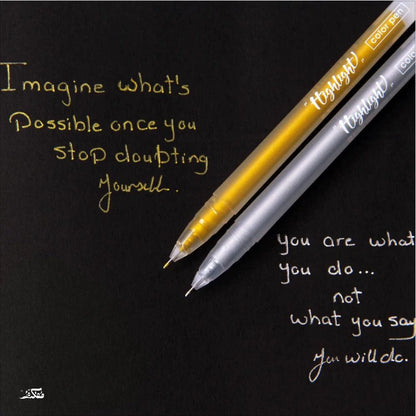 Imagine what's
Possible once you
stop doubting
yourself.
"Highlight"
color pen
"Highlight"
you are what
you do...
not
what you say
You will do.